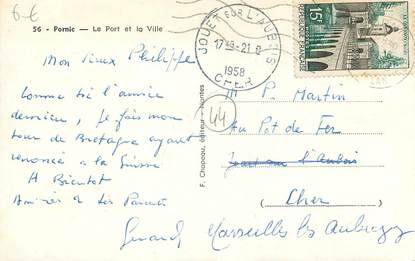 6-€
56 - Pornic — Le Port et la Ville
JOUET SUR L'AUBOIS
17H8-21.8
1958
CHER
15F
Mon vieux Philippe
Comme l'année
dernière, je fais mon
tour de Bretagne ayant
renoncé à la Suisse
A Bientôt
Amitiés à tes Parents
Gérard
F. Chapeau, éditeur - Nantes
44
M P. Martin
Au Pot de Fer
Jouet sur l'Aubois
(Cher)
Marseilles les Aubigny